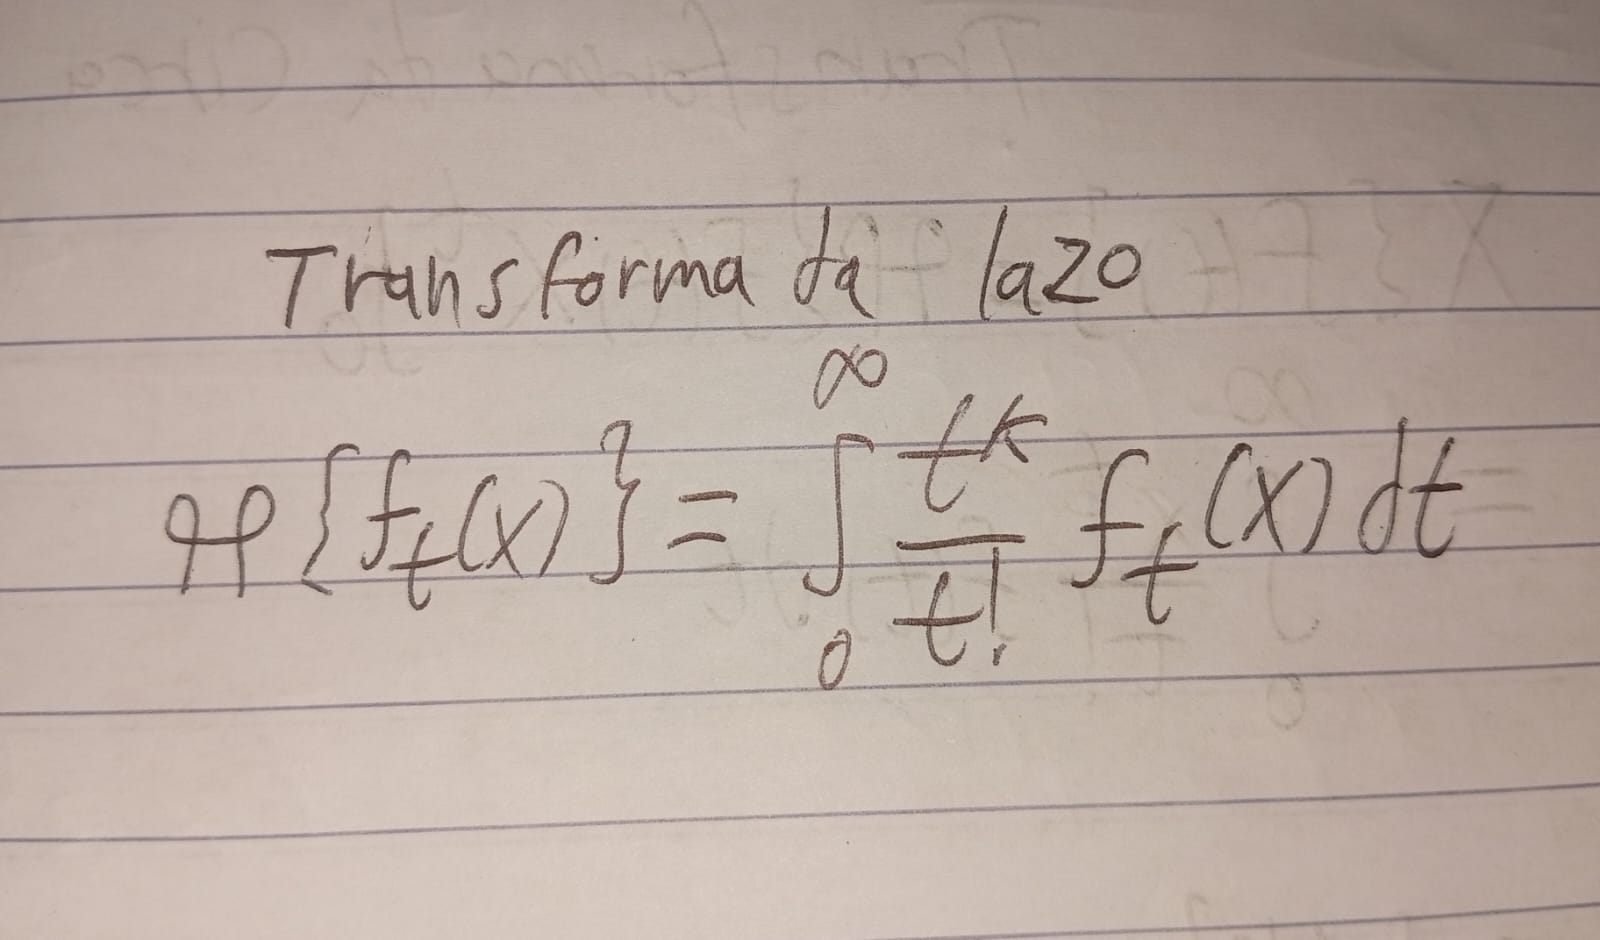 Transforma da lazo
ꟼP{f_t(x)} = ∫_0^∞ t^k/t! f_t(x) dt